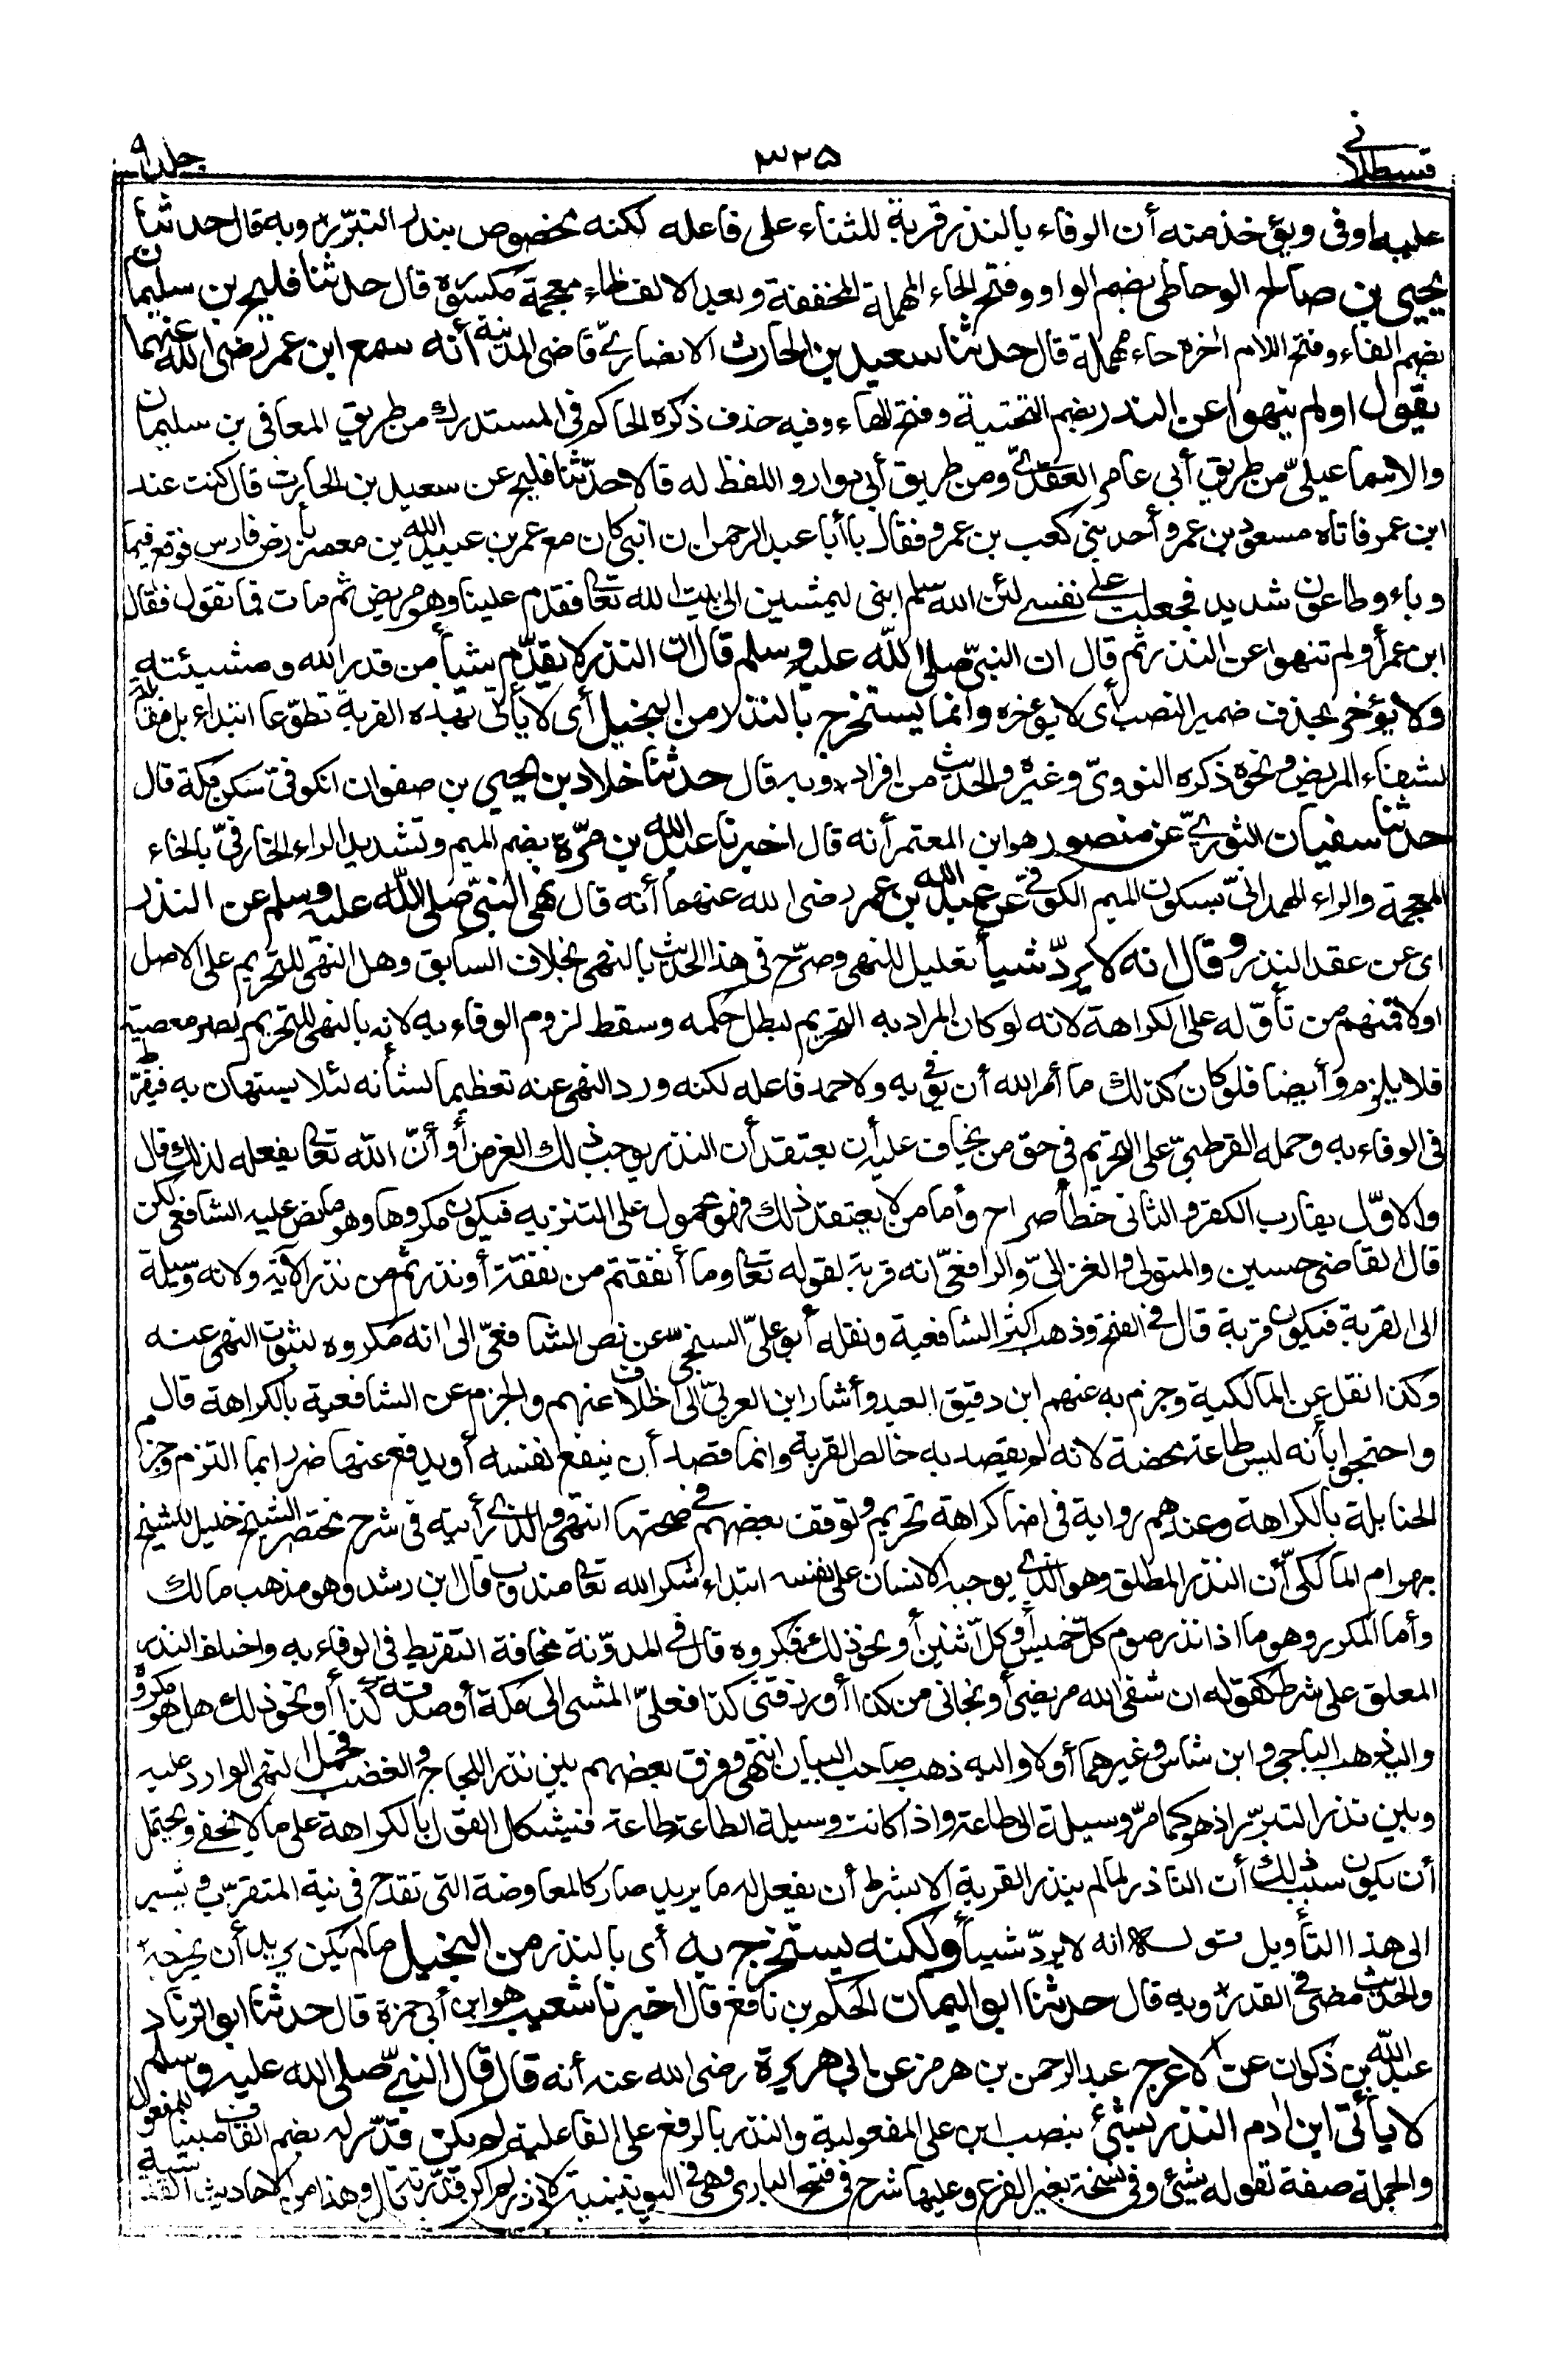 قسطلانی
٣٢٥
جلد ٩
عليه اوفى ويؤخذ منه أن الوفاء بالنذر قربة للثناء على فاعله لكنه مخصوص بنذر التبرّر * وبه قال حدثنا
يحيى بن صالح الوحاظى بضم الواو وفتح الحاء المهملة المخففة وبعد الالف ظاء معجمة مكسورة قال حدثنا فليح بن سليمان
بضم الفاء وفتح اللام اخره حاء مهملة قال حدثنا سعيد بن الحارث الانصارىّ قاضى المدينة أنه سمع ابن عمر رضى الله عنهما
يقول اولم ينهوا عن النذر بضم التحتية وفتح الهاء وفيه حذف ذكره الحاكم فى المستدرك من طريق المعافى بن سليمان
والاسماعيلىّ من طريق أبى عامر العقدىّ ومن طريق أبى داود واللفظ له قالا حدّثنا فليح عن سعيد بن الحارث قال كنت عند
ابن عمر فاتاه مسعود بن عمرو أحد بنى كعب بن عمرو فقال يا أبا عبد الرحمن ان ابنى كان مع عمر بن عبيد الله بن معمر بأرض فارس فوقع فيها
وباء وطاعون شديد فجعلت على نفسى لئن الله سلم ابنى ليمشين الى بيت الله تعالى فقدم علينا وهو مريض ثم مات فما تقول فقال
ابن عمر أولم تنهوا عن النذر ثم قال ان النبىّ صلى الله عليه وسلم قال ان النذر لا يقدّم شيأ من قدر الله ومشيئته
ولا يؤخر بحذف ضمير النصب أى لا يؤخره وانما يستخرج بالنذر من البخيل أى لا يأتى بهذه القربة تطوّعا ابتداء بل مقابلة
لشفاء المريض ونحوه ذكره النووىّ وغيره والحديث من افراده * وبه قال حدثنا خلاد بن يحيى بن صفوان الكوفىّ سكن مكة قال
حدثنا سفيان الثورىّ عن منصور هو ابن المعتمر أنه قال اخبرنا عبد الله بن مرّة بضم الميم وتشديد الراء الخارفىّ بالخاء
المعجمة والراء الهمدانىّ بسكون الميم الكوفى عن عبد الله بن عمر رضى الله عنهما أنه قال نهى النبىّ صلى الله عليه وسلم عن النذر
اى عن عقد النذر وقال انه لا يردّ شيأ تعليل للنهى وصرّح فى هذا الحديث بالنهى بخلاف السابق وهل النهى للتحريم على الاصل
اولا فمنهم من تأوّله على الكراهة لانه لو كان المراد به التحريم لبطل حكمه وسقط لزوم الوفاء به لانه بالنهى للتحريم يصير معصية
فلا يلزم وأيضا فلو كان كذلك ما أمر الله أن يوفى به ولا حمد فاعله لكنه ورد النهى عنه تعظيما لشأنه لئلا يستهان به فيفرّط
فى الوفاء به وحمله القرطبىّ على التحريم فى حق من يخاف عليه أن يعتقد أن النذر يوجب ذلك الغرض أو أنّ الله تعالى يفعله لذلك قال
والاوّل يقارب الكفر والثانى خطأ صراح وأما من لا يعتقد ذلك فهو محمول على التنزيه فيكون مكروها وهو ما نص عليه الشافعى لكن
قال القاضى حسين والمتولى والغزالىّ والرافعىّ انه قربة لقوله تعالى وما أنفقتم من نفقة أو نذرتم من نذر الآية ولانه وسيلة
الى القربة فيكون قربة قال فى الفتح وذهب اكثر الشافعية ونقله أبو علىّ السنجىّ عن نص الشافعىّ الى انه مكروه لثبوت النهى عنه
وكذا نقل عن المالكية وجزم به عنهم ابن دقيق العيد وأشار ابن العربىّ الى الخلاف عنهم والجزم عن الشافعية بالكراهة قال
واحتجوا بأنه ليس طاعة محضة لانه لم يقصد به خالص القربة وانما قصد أن ينفع نفسه أو يدفع عنها ضررا بما التزم وجزم
الحنابلة بالكراهة وعندهم رواية فى انها كراهة تحريم وتوقف بعضهم فى صحتها انتهى والذى رأيته فى شرح مختصر الشيخ خليل للشيخ
بهرام المالكىّ أن النذر المطلق وهو الذى يوجبه الانسان على نفسه ابتداء شكرا لله تعالى مندوب قال ابن رشد وهو مذهب مالك
وأما المكرر وهو ما اذا نذر صوم كل خميس أو كل اثنين أو نحو ذلك فمكروه قال فى المدوّنة مخافة التفريط فى الوفاء به واختلف النذر
المعلق على شرط كقوله ان شفى الله مريضى أو نجانى من كذا أو رزقنى كذا فعلىّ المشى الى مكة أو صدقة كذا أو نحو ذلك هل هو مكروه
واليه ذهب الباجى وابن شاس وغيرهما أولا واليه ذهب صاحب البيان انتهى وفرق بعضهم بين نذر اللجاج والغضب فحمل النهى الوارد عليه
وبين نذر التبرّر اذ هو كما مرّ وسيلة الى طاعة واذا كانت وسيلة الطاعة طاعة فيشكل القول بالكراهة على ما لا يخفى ويحتمل
أن يكون سبب ذلك أن الناذر لما لم ينذر القربة الا بشرط أن يفعل له ما يريد صار كالمعاوضة التى تقدح فى نية المتقرّب ويشير
الى هذا التأويل قوله انه لا يردّ شيأ ولكنه يستخرج به أى بالنذر من البخيل ما لم يكن يريد أن يخرجه
والحديث مضى فى القدر * وبه قال حدثنا ابو اليمان الحكم بن نافع قال اخبرنا شعيب هو ابن أبى حمزة قال حدثنا ابو الزناد
عبد الله بن ذكوان عن الاعرج عبد الرحمن بن هرمز عن ابى هريرة رضى الله عنه أنه قال قال النبىّ صلى الله عليه وسلم
لا يأتى ابن ادم النذر بشئ بنصب ابن على المفعولية والنذر بالرفع على الفاعلية لم يكن قدّر له بضم القاف مبنيا للمفعول
والجملة صفة لقوله بشئ وفى نسخة بغير الفرع وعليها شرح فى فتح البارى وهى فى اليونينية لابى ذر لم اكن قدّرته قال وهذا من الاحاديث القدسية